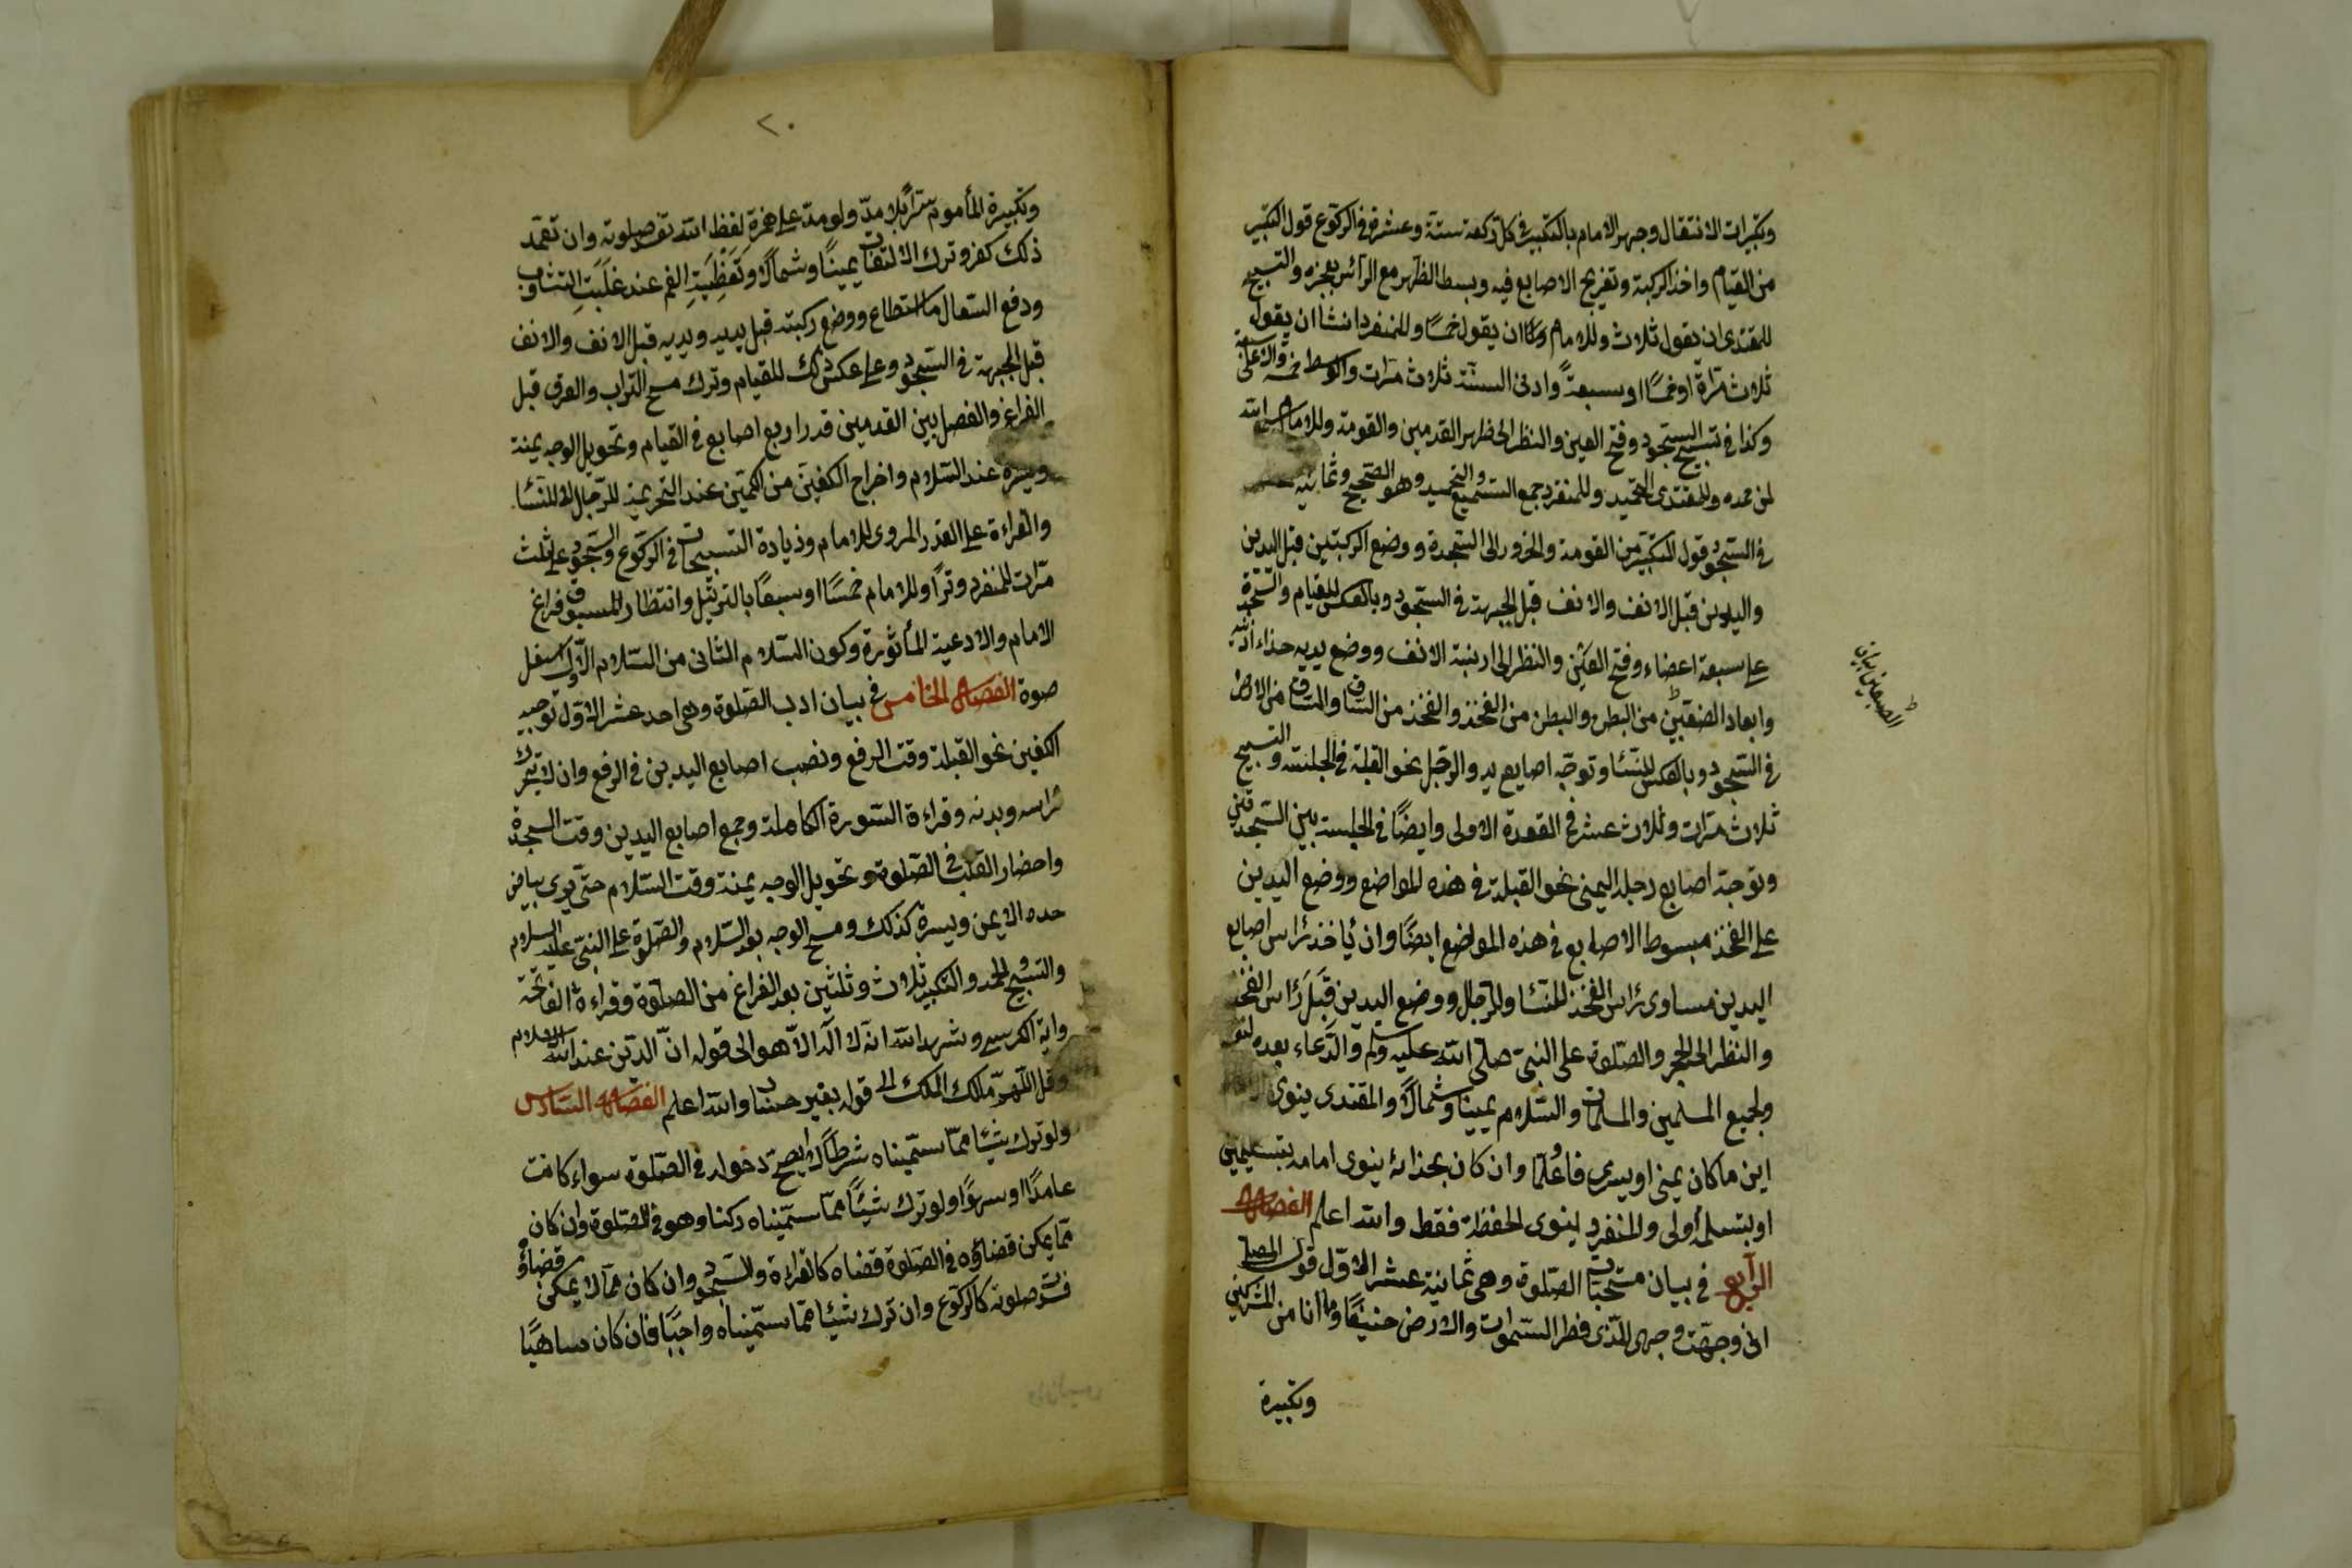 وتكبيرات الانتقال وجهر الامام بالتكبير في كل ركعة ستة وعشرة في الركوع قول التكبير
من القيام واخذ الركبة وتفريج الاصابع فيه وبسط الظهر مع الرأس بعجزه والتسبيح
للمقتدى ان يقول ثلاث وللامام ان يقول خمسا وللمنفرد انشا ان يقول
ثلاث مرّاة او خمسًا او سبعةً وادنى السنّة ثلاث مرّات والوسط خمسة والاعلى
وكذا في تسبيح السّجود وفتح العين والنظر الى ظهر القدمين والقومة وللامام سمع الله
لمن حمده وللمقتدى التحميد وللمنفرد جمع التسميع والتحميد وهو الصّحيح وثمانية
في السّجود قول التكبير من القومة والخرور الى السّجدة ووضع الركبتين قبل اليدين
واليدين قبل الانف والانف قبل الجبهة في السّجود وبالعكس للقيام والسّجدة
على سبعة اعضاء وفتح العين والنظر الى ارنبة الانف ووضع يديه حذاء اذنيه
وابعاد الضبعين من البطن والبطن من الفخذ والفخذ من السّاق والسّاق من الارض
في السّجود وبالعكس للنّسا وتوجّه اصابع يد والرّجل نحو القبلة في الجلسة والتسبيح
ثلاث مرّات وثلاث عشر في القعدة الاولى وايضًا في الجلسة بين السّجدتين
وتوجّة اصابع رجله اليمنى نحو القبلة في هذه المواضع ووضع اليدين
على الفخذ مبسوط الاصابع في هذه المواضع ايضًا وان يأخذ رأس اصابع
اليدين مساوى رأس الفخذ للنسا وللرّجال ووضع اليدين قِبَلَ رأس الفخذ
والنظر الى الحجر والصّلوة على النبيّ صلّى الله عليه وسلم والدّعاء بعده لنفسه
ولجميع المسلمين والمسلمات والسّلام يمينا وشمالاً والمقتدى ينوى
اين ما كان يمنى او يسرى فاعلما وان كان بحذائه ينوى امامه بتسليمتين
او بتسلمة أولى والمنفرد لينوى الحفظة فقط والله اعلم الفصل
الرّابع في بيان مستحبّات الصّلوة وهى ثمانية عشر الاوّل قول المصلى
انى وجهت وجهى للّذى فطر السّموات والارض حنيفًا وما انا من المشركين
وتكبيرة
٢٠
وتكبيرة المأموم سرّاً بلا مدّ ولو مدّ على همزة لفظ الله تفسد صلوته وان تعمّد
ذلك كفر وترك الالتفات يمينًا وشمالًا وتَغْطِيَةِ الفم عند غَلَبَتِ التثاوب
ودفع السّعال ما استطاع ووضع ركبته قبل يديه ويديه قبل الانف والانف
قبل الجبهة في السّجود وعلى عكس ذلك للقيام وترك مسح التّراب والعرق قبل
الفراغ والفصل بين القدمين قدر اربع اصابع في القيام وتحويل الوجه يمنة
ويسرة عند السّلام واخراج الكفين من الكمّين عند التحريمة للرّجال لا للنّسا
والقراءة على القدر المروى للامام وزيادة التسبيحات في الركوع والسّجود على ثلث
مرّات للمنفرد وترًا وللامام خمسًا او سبعًا بالترتيل وانتظار المسبوق فراغ
الامام والادعية المأثورة وكون السّلام الثانى من السّلام الاوّل اسفل
صوة الفصل الخامس في بيان ادب الصّلوة وهى احد عشر الاوّل توجيه
الكفين نحو القبلة وقت الرفع ونصب اصابع اليدين في الرفع وان لا يتحرّك
رأسه وبدنه وقراءة السّورة الكاملة وجمع اصابع اليدين وقت السجدة
واحضار القلب في الصّلوة وتحويل الوجه يمنة وقت السّلام حتّى يرى بياض
خده الايمن ويسرة كذلك ومسح الوجه بعد السّلام والصّلوة على النبيّ عليه السلام
والتسبيح والحمد والتكبير ثلاث وثلثين بعد الفراغ من الصلوة وقراءة الفاتحة
واية الكرسى وشهد الله انه لا اله الّا هو الى قوله انّ الدّين عند الله الاسلام
وقل اللّهمّ مالك الملك الى قوله بغير حساب والله اعلم الفصل السّادس
ولو ترك شيئا ممّا سمّيناه شرطا لا يصحّ دخوله في الصّلوة سواء كانت
عامدًا او سهوًا ولو ترك شيئًا ممّا سمّيناه ركنا وهو في الصّلوة وان كان
ممّا يمكن قضاؤه في الصّلوة قضاه كالقراءة والسّجود وان كان ممّا لا يمكن قضاؤه
فسدت صلوته كالركوع وان ترك شيئا ممّا سمّيناه واجبًا فان كان ساهيًا